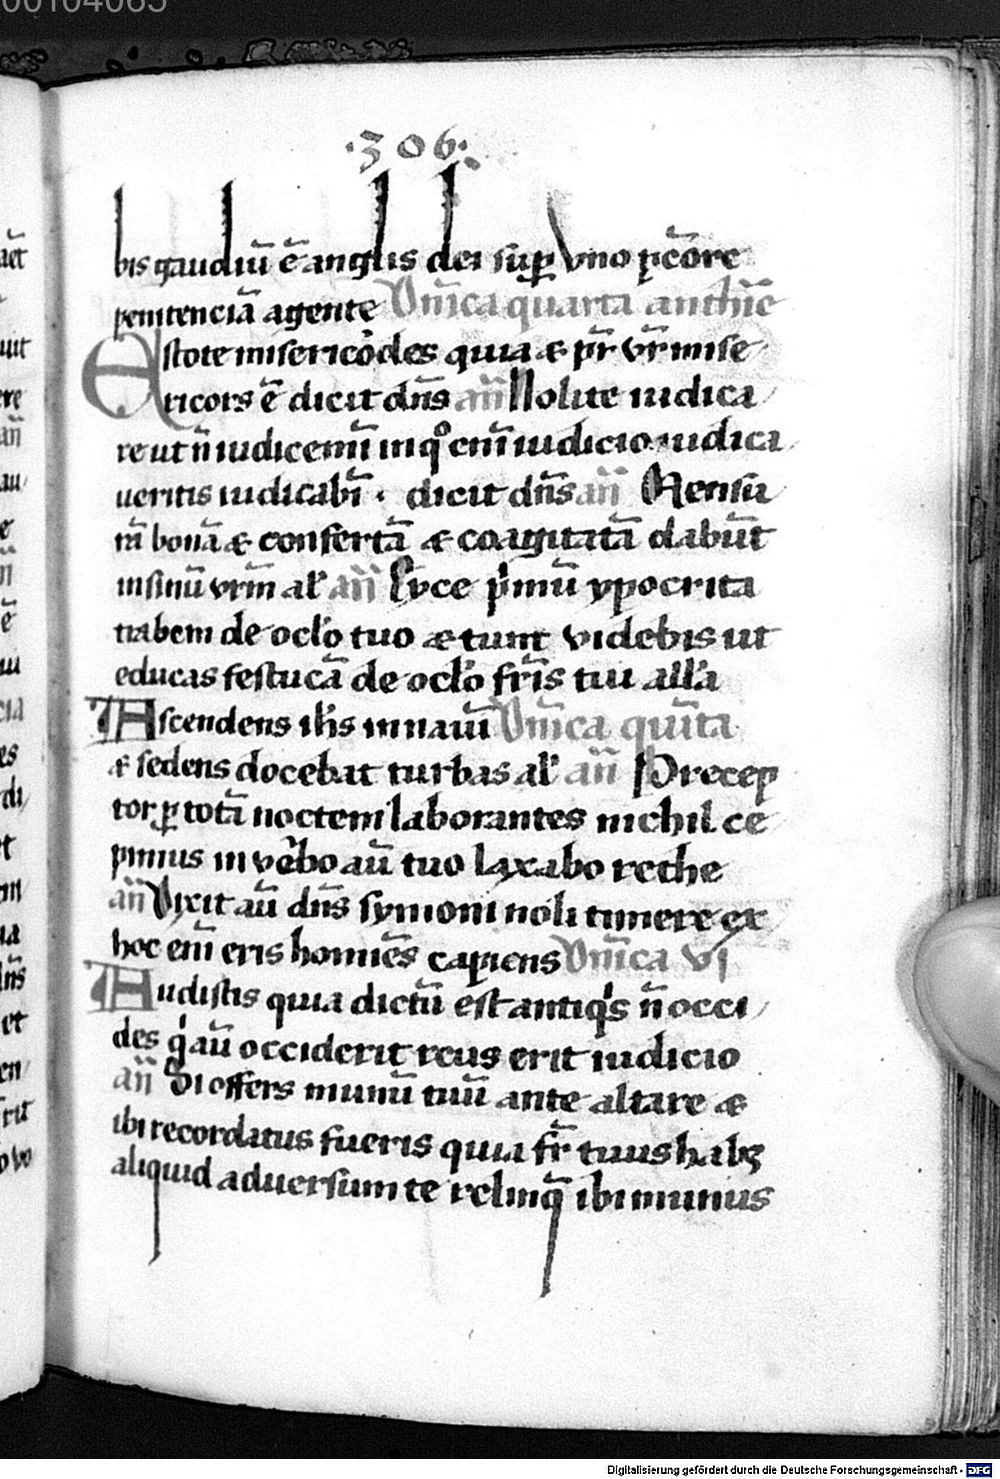 00104065
·306·
bis gaudiū ē anglis dei sup vno pc̄ore
penitenciā agente Dn̄ica quarta anthīe
Estote misericordes quia & pr̄ vr̄ mise
ricors ē dicit dn̄s an̄ Nolite iudica
re ut n̄ iudicemī in qͦ eni iudicio iudica
ueritis iudicabī · dicit dn̄s an̄ Mensu
rā bonā & confertā & coagitatā dabūt
in sinū vrm̄ al' an̄ Eyce pimū ypocrita
trabem de oclo tuo & tunc videbis ut
educas festucā de oclo fris tui all'a
Ascendens ihs in nauī Dn̄ica quīta
& sedens docebat turbas al' an̄ Precep
tor p totā noctem laborantes nichil ce
pimus in v'bo aū tuo laxabo rethe
an̄ Dixit aū dn̄s symoni noli timere ex
hoc enī eris homīes capiens Dn̄ica vj
Audistis quia dictū est antiqis n̄ occi
des qi aū occiderit reus erit iudicio
an̄ Si offers munū tuū ante altare &
ibi recordatus fueris quia fr̄ tuus habꝫ
aliquid aduersum te relinq̄ ibi munus
Digitalisierung gefördert durch die Deutsche Forschungsgemeinschaft - DFG